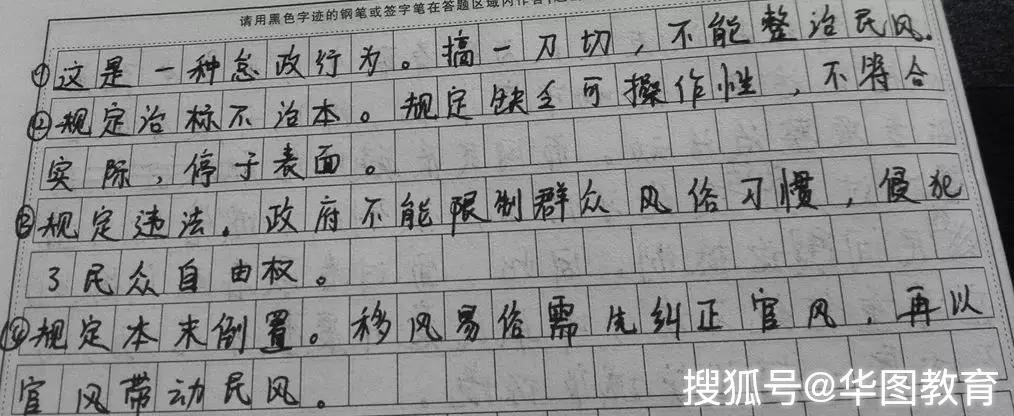 请用黑色字迹的钢笔或签字笔在答题区域内作答
①这是一种怠政行为。搞一刀切，不能整治民风。
②规定治标不治本。规定缺乏可操作性，不符合
实际，停于表面。
③规定违法。政府不能限制群众风俗习惯，侵犯
了民众自由权。
④规定本末倒置。移风易俗需先纠正官风，再以
官风带动民风。
搜狐号@华图教育